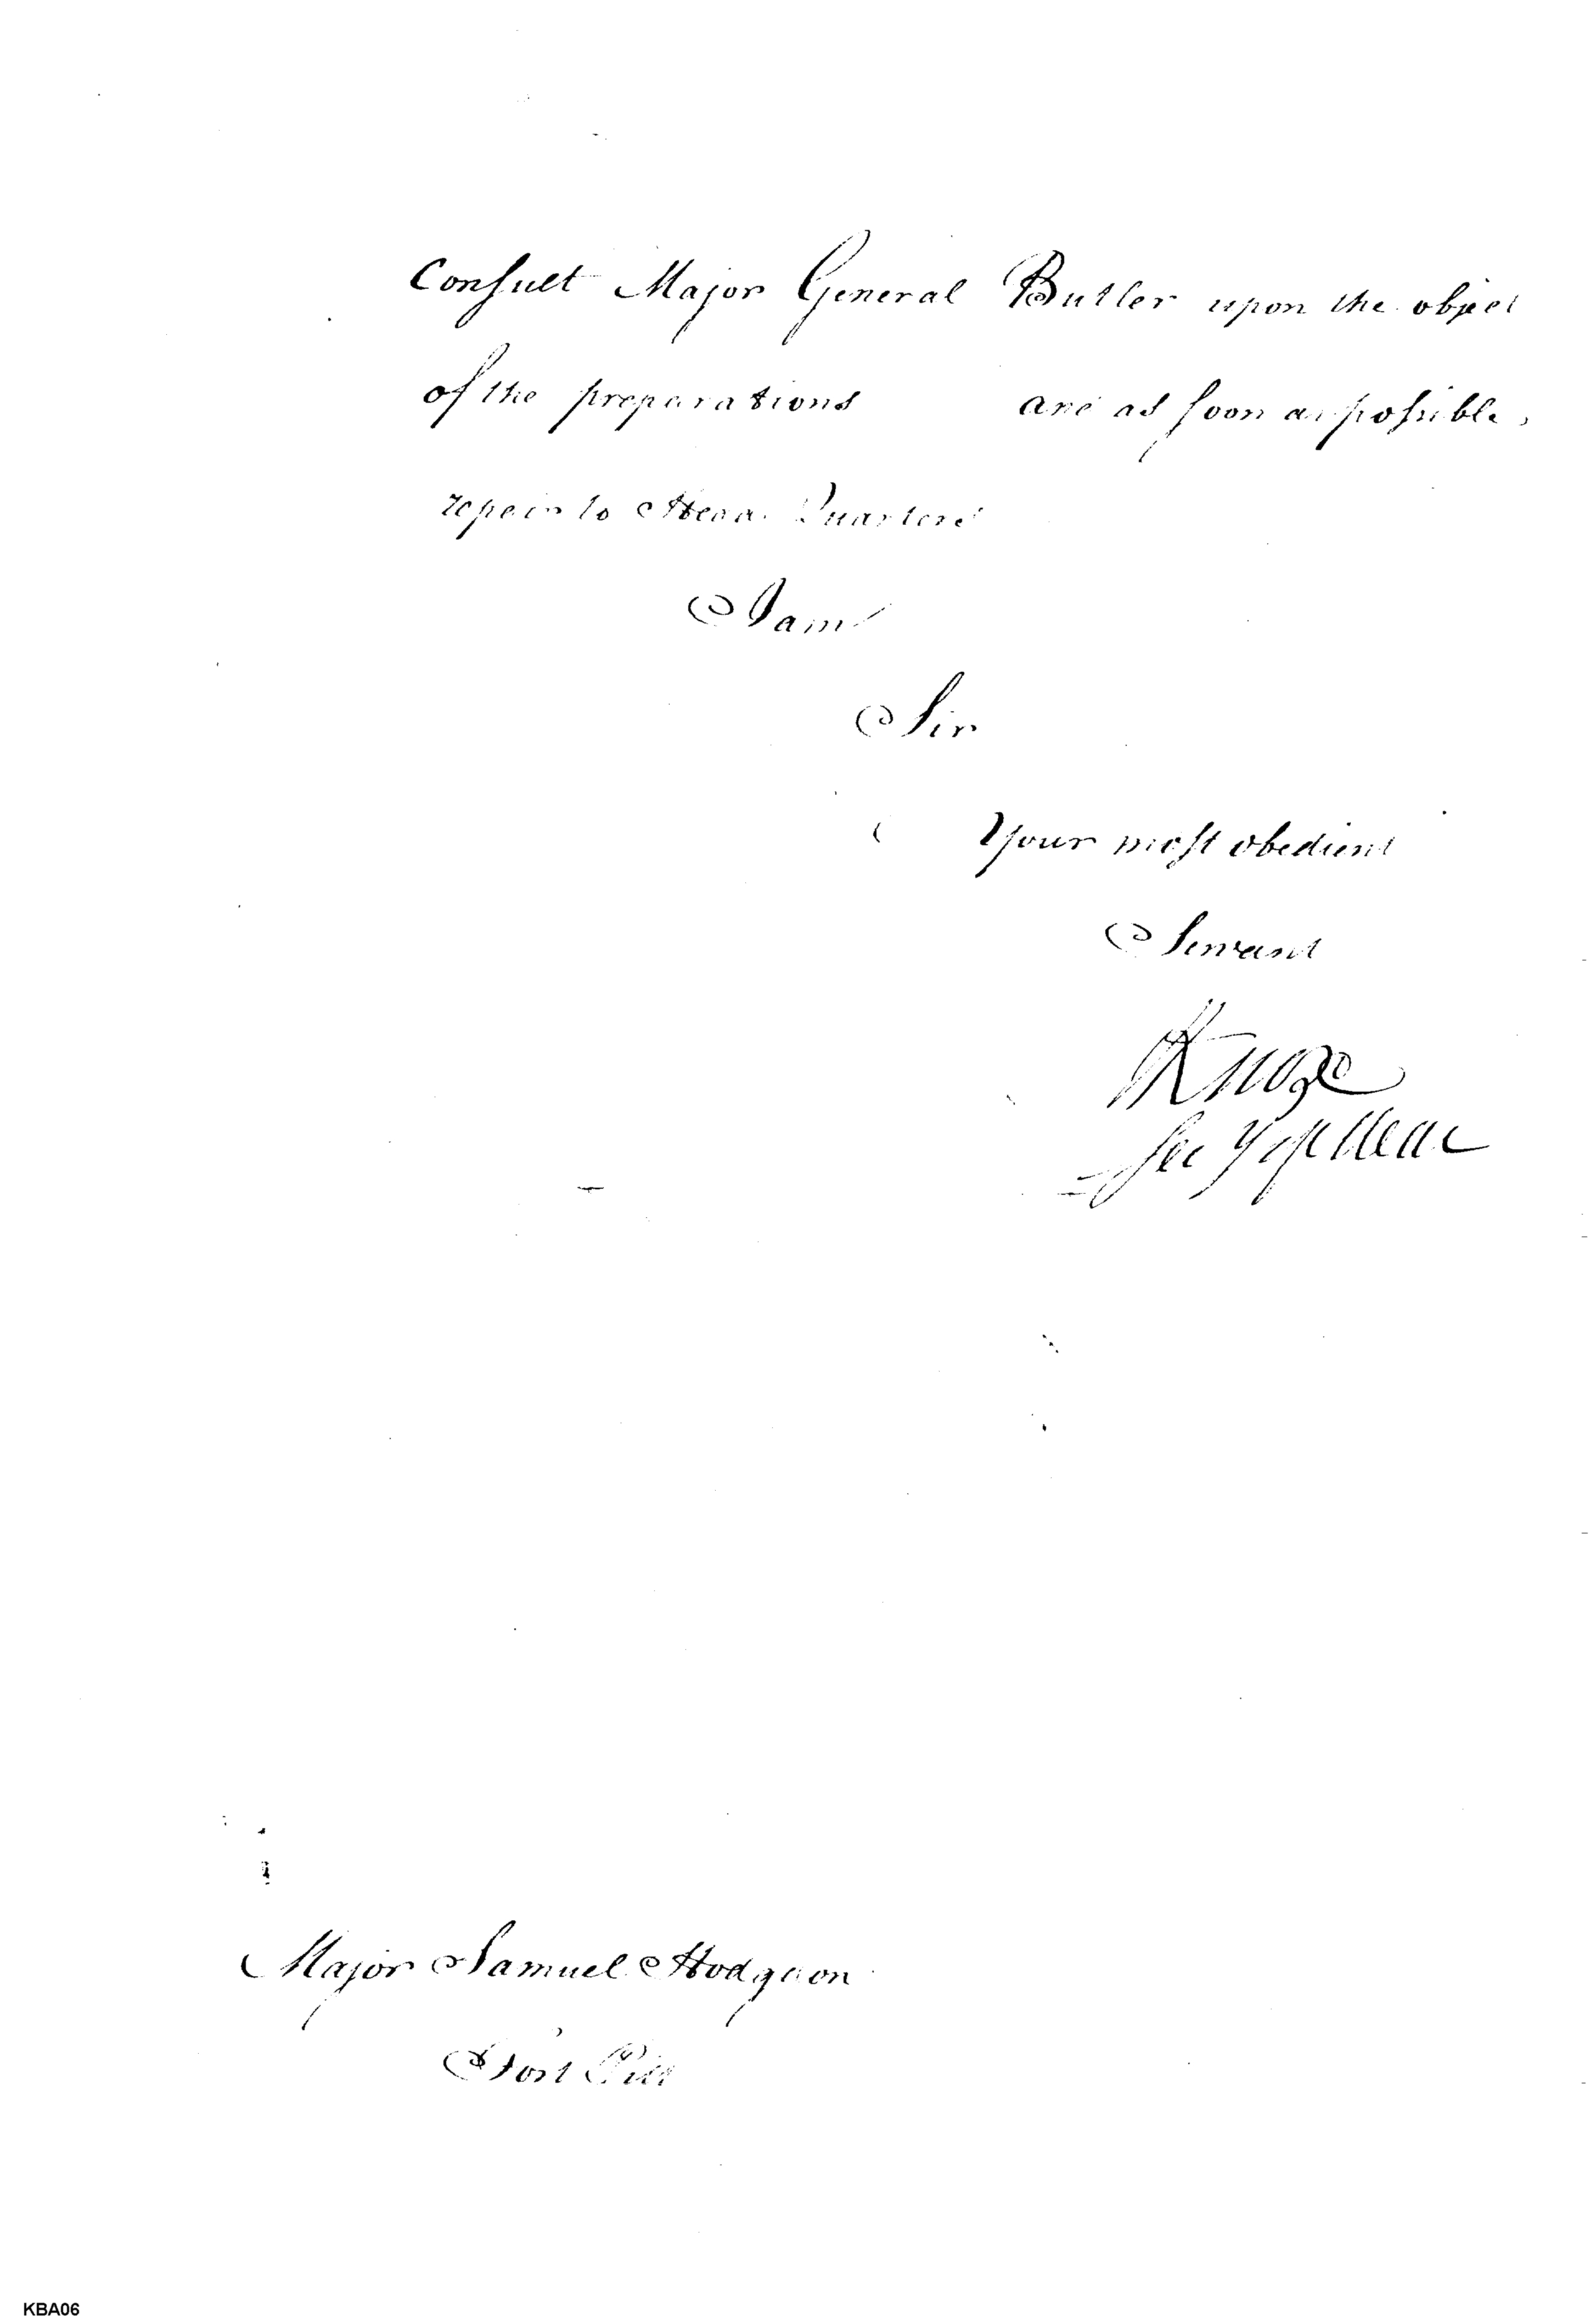 Consult Major General Butler upon the object
of the preparations and as soon as possible,
repair to Head Quarters
I am
Sir
Your most obedient
Servant
HKnox
Secy of War
Major Samuel Hodgdon
Fort Pitt
KBA06